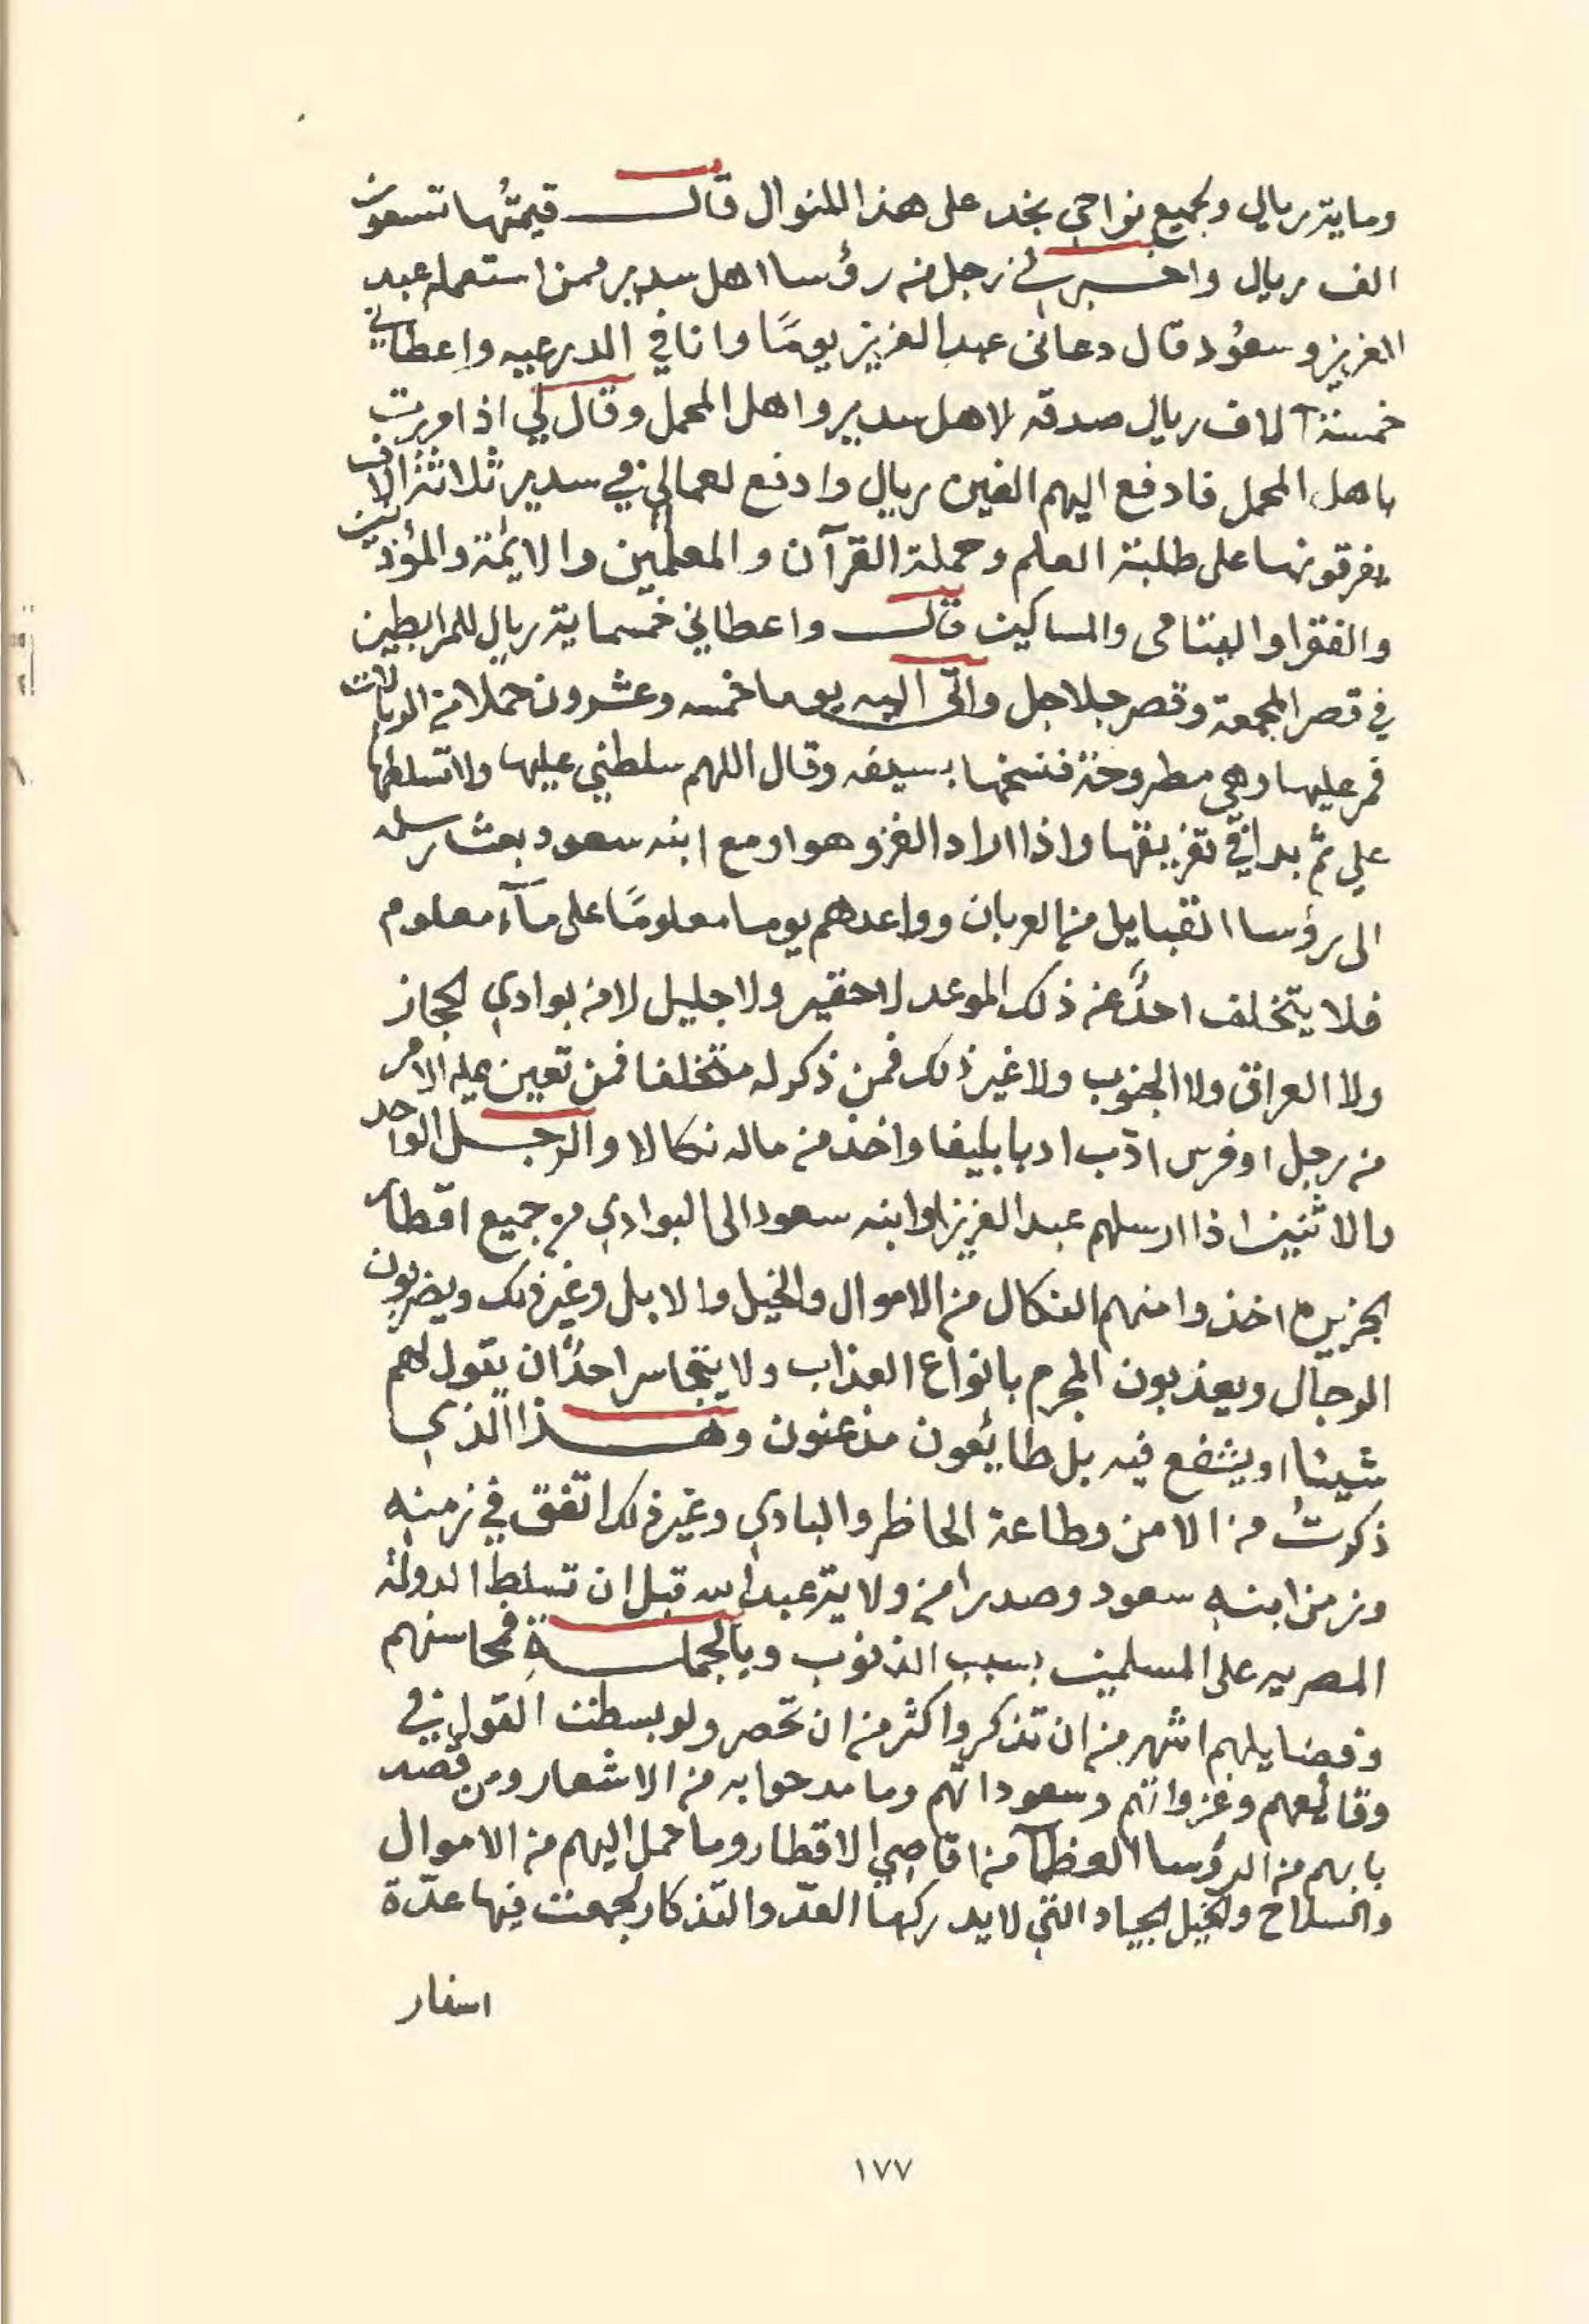 ومايتر ريال وبجميع نواحي نجد على هذا المنوال قال قيمتُها تسعون
الف ريال واخبرني رجل من رؤسا اهل سدير ممن استعمله عبد
العزيز وسعوُد قال دعاني عبد العزيز يومًا وانا في الدرعيه واعطاني
خمسة آلاف ريال صدقه لاهل سدير واهل المحمل وقال لي اذا مررت
باهل المحمل فادفع اليهم الفين ريال وادفع لعمالي في سدير ثلاثة آلاف
يفرقونها على طلبة العلم وحملة القرآن والمعلمين والايمٔة والمؤذنين
والفقرا واليتامى والمساكين قال واعطاني خمسماية ريال للمرابطين
في قصر المجمعة وقصر جلاجل واتى اليه يوما خمسه وعشرون حملا من الريالات
فمر عليها وهي مطروحة فنسخها بسيفه وقال اللهم سلطني عليها ولا تسلطها
علي ثم بدا في تفريقها واذا اراد الغزو هو او مع ابنه سعود بعث رسله
الى رؤسا القبايل من العربان وواعدهم يوما معلومًا على مآء معلوم
فلا يتخلف احدٌ عن ذلك الموعد لا حقير ولا جليل لا من بوادي الحجاز
ولا العراق ولا الجنوب ولا غير ذلك فمن ذكر له متخلفا فمن تعين عليه الامر
من رجل او فرس ادّب ادبا بليغا واخذ من ماله نكالا والرجل الواحد
والاثنين اذا ارسلهم عبد العزيز او ابنه سعود الى البوادي من جميع اقطار
الجزيره اخذوا منهم النكال من الاموال والخيل والابل وغير ذلك ويضربون
الرجال ويعذبون المجرم بانواع العذاب ولا يتجاسر احدٌ ان يقول لهم
شيئا او يشفع فيه بل طائعون مذعنون وهذا الذي
ذكرتُ من الامن وطاعة الحاظر والبادي وغير ذلك اتفق في زمنه
وزمن ابنه سعود وصدرا من ولاية عبد الله قبل ان تسلط الدولة
المصريه على المسلمين بسبب الذنوب وبالجملةِ فمحاسنهم
وفضايلهم اشهر من ان تذكر واكثر من ان تحصر ولو بسطت القول في
وقائعهم وغزواتهم وسعوداتهم وما مدحوا به من الاشعار ومن قصد
بابهم من الرؤسا العظمآ من اقاصي الاقطار وما حمل اليهم من الاموال
والسلاح والخيل الجياد التي لا يدركها العدّ والتذكار لجمعت فيها عدّة
اسفار
١٧٧